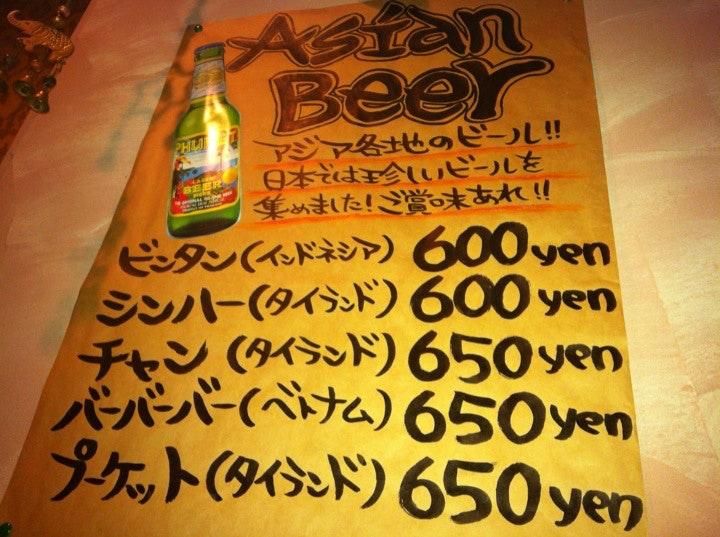 Asian
Beer
アジア各地のビール!!
日本では珍しいビールを
集めました!ご賞味あれ!!
ビンタン(インドネシア) 600yen
シンハー(タイランド) 600yen
チャン (タイランド) 650yen
バーバーバー(ベトナム) 650yen
プーケット(タイランド) 650yen
PHUKET
LAGER
BEER